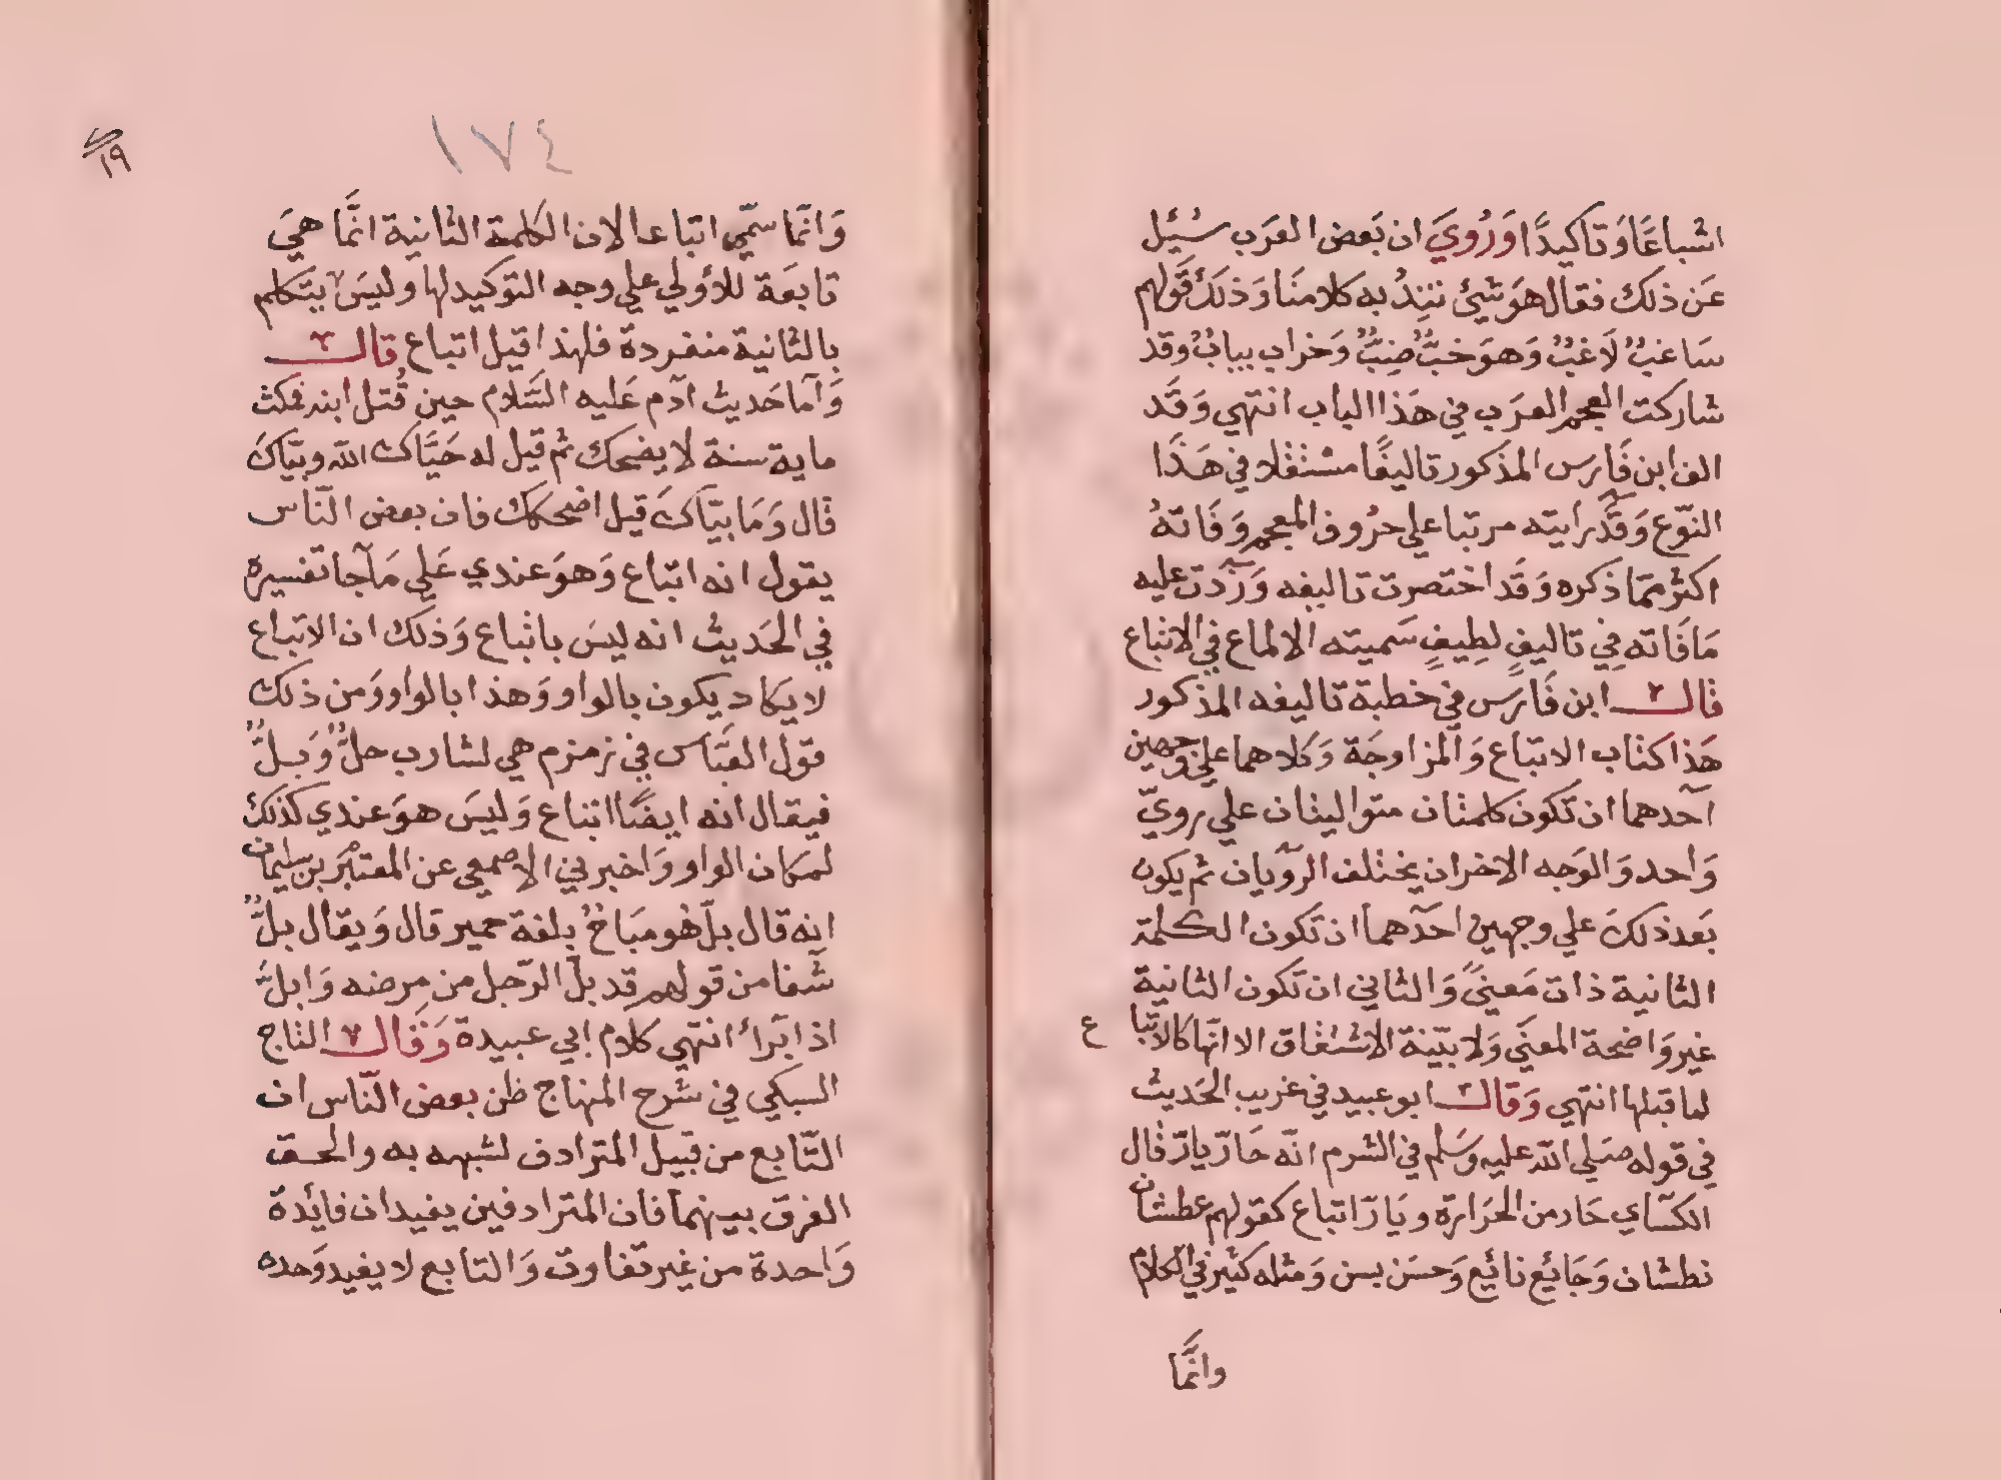 اشباعًا وَتاكيدًا وَرُويَ ان بَعض العرَب سُئيل
عَن ذلك فقال هوَ شيئ نتِدُ به كلامنَا وَذلكَ قَولهم
سَاغبٌ لَاغبٌ وَهوَ خبٌّ ضبٌّ وَخراب يبابٌ وقد
شاركت العجم العرَب في هَذا الباب انتهي وَقَد
الف ابن فَارس المذكور تاليفًا مستقلا في هَذَا
النّوع وَقَد رايته مرتبا علي حرُوف المعجم وَفَاتهُ
اكثر ممّا ذكره وَقَد اختصرت تاليفه وَزدت عليه
مَا فَاته فِي تاليفٍ لطِيفٍ سَميته الالماع في الاتباع
قال ابن فَارس في خطبة تاليفه المذكور
هَذا كتاب الاتباع وَالمزاوجَة وَكلاهما علي وجهين
اَحدهما ان تكون كلمتان متواليتان علي رويّ
وَاحد وَالوَجه الاخران يختلف الرّويان ثم يكون
بَعد ذلكَ علي وجهين احَدهما ان تكون الكلمة
الثانية ذات مَعنيً وَالثاني ان تكون الثانية
غير وَاضحة المعنَي وَلا بيّنة الاشتقاق الا انّها كالاتبا ع
لما قبلها انتهي وَقال ابو عبيد في غريب الحَديث
في قوله صَلي الله عليه وَسَلم في الشبرم انّه حَارّ يارّ قال
الكسَاي حَار من الحَرَارة و يَارّ اتباع كقولهم عطشان
نطشان وَجَائع نائع وَحسَن بسن وَمثله كثير في الكلام
وانَّما
١٧٤
١٩
وَانّمَا سمّي اتباعا لان الكلمة الثانية انَّما هيَ
تابعَة للأولي علي وجه التوكيد لها وليسَ يتكلم
بالثانية منفردة فلهذا قيل اتباع قال
وَاَما حَديث آدَم عَليه السَّلام حين قُتل ابنه فمكث
ماية سنة لا يضحك ثم قيل له حَيَّاك الله وبيّاكَ
قال وَمَا بيّاكَ قيل اضحكك فان بعض النّاس
يقول انه اتباع وَهوَ عندي عَلي مَا جا تفسيره
في الحَديث انه ليسَ باتباع وَذلك ان الاتباع
لا يكاد يكون بالواو وَهذا بالواو وَمن ذلك
قول العبّاس في زمزم هي لشارب حلٌّ وَبلٌّ
فيقال انه ايضًا اتباع وَليسَ هوَ عندي كذلكَ
لمكان الواو وَاخبرني الاصمعي عن المعتمر بن سليمان
انه قال بلّ هُو مبَاحٌ بلغة حمير قال وَيقال بلٌّ
شفا من قولهم قد بلّ الرّجل من مرضه وَابلّ
اذا برأ انتهي كلام ابي عبيدة وَقَال التاج
السبكي في شرح المنهاج ظن بعض النّاس ان
التّابع من قبيل المترادف لشبهه به والحق
الفرق بينهما فان المترادفين يفيدان فائدة
وَاحدة من غير تفاوت وَالتابع لا يفيد وَحده